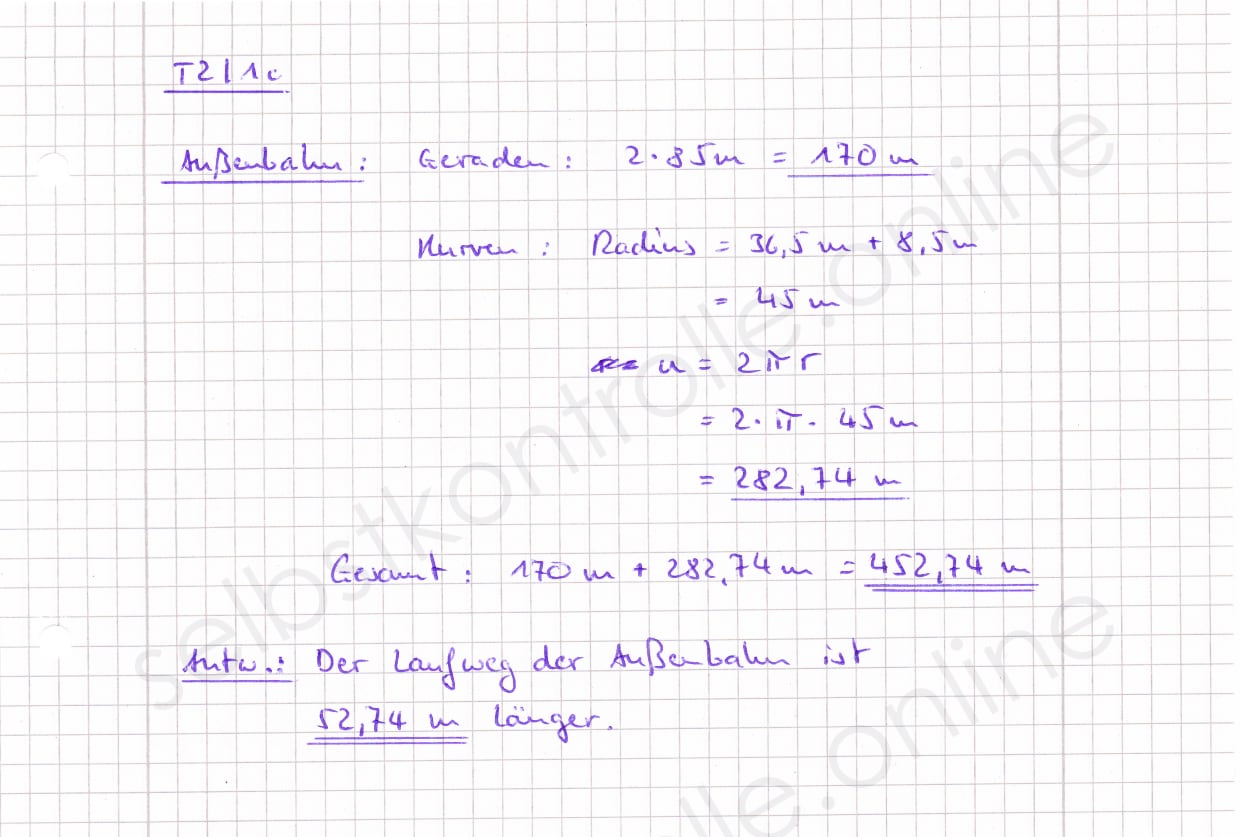 T2/1c
Außenbahn: Geraden: 2·85m = 170 m
Kurven: Radius = 36,5 m + 8,5 m
= 45 m
u = 2πr
= 2·π·45 m
= 282,74 m
Gesamt: 170 m + 282,74 m = 452,74 m
Antw.: Der Laufweg der Außenbahn ist
52,74 m länger.
selbstkontrolle.online
lle.online